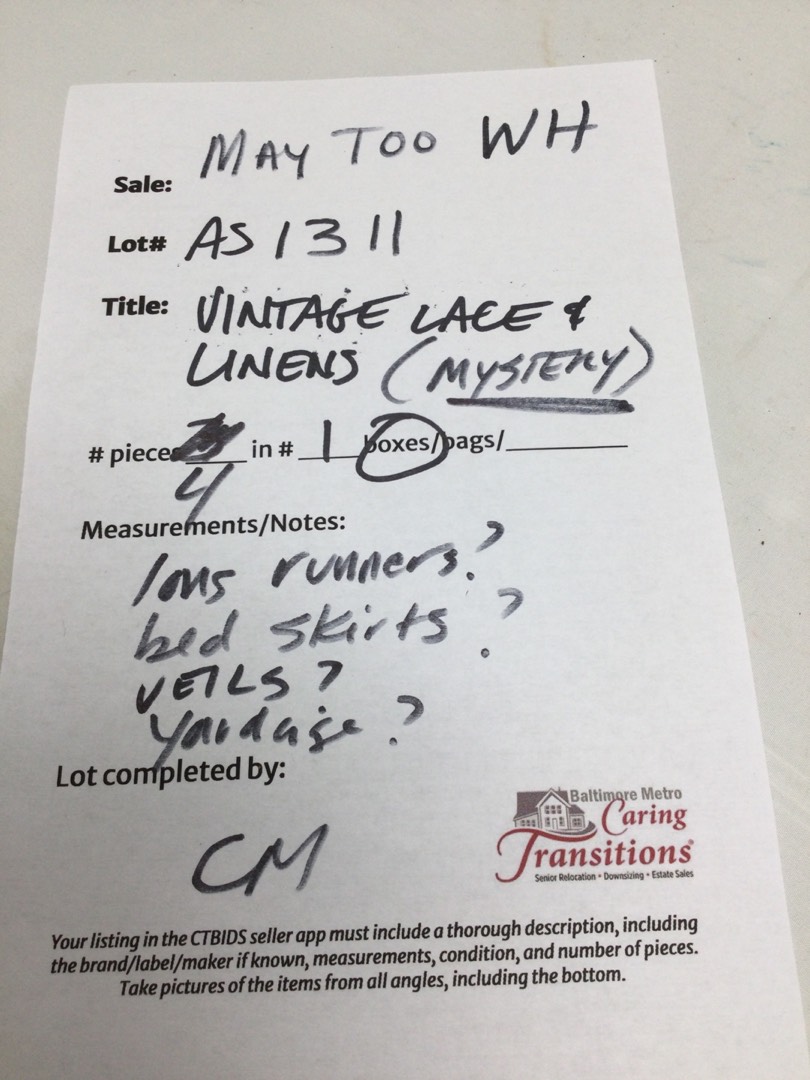 Sale: MAY TOO WH
Lot# AS 1311
Title: VINTAGE LACE &
LINENS (MYSTERY)
# pieces 4 in # 1 boxes/bags/
Measurements/Notes:
long runners?
bed skirts?
VEILS?
Yardage?
Lot completed by:
CM
Baltimore Metro
Caring
Transitions
Senior Relocation • Downsizing • Estate Sales
Your listing in the CTBIDS seller app must include a thorough description, including
the brand/label/maker if known, measurements, condition, and number of pieces.
Take pictures of the items from all angles, including the bottom.